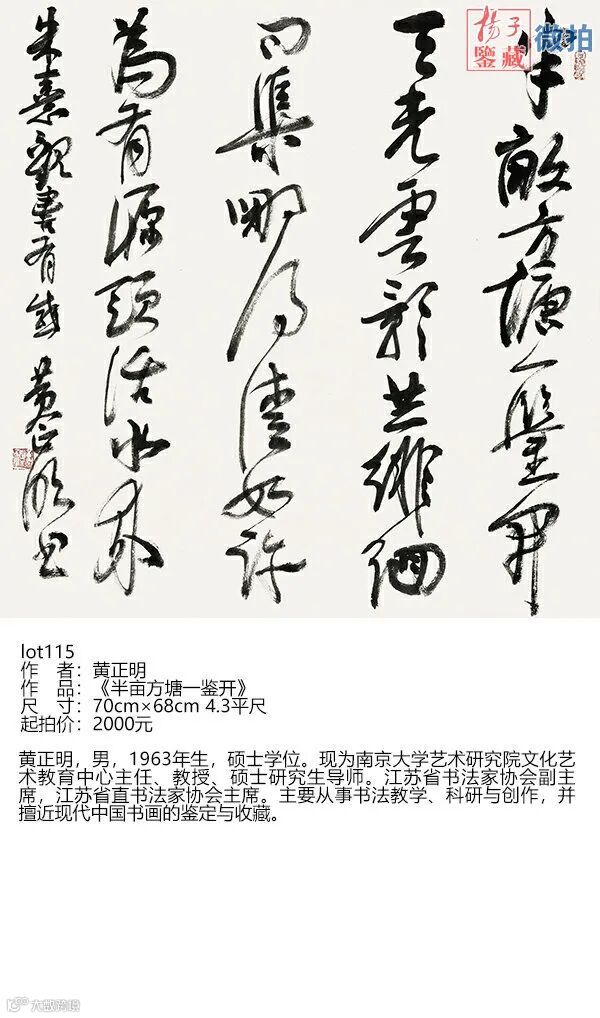 揚子
鑒藏
微拍
半畝方塘一鑒開
天光雲影共徘徊
问渠哪得清如許
為有源頭活水來
朱熹觀書有感 黄正明书
lot115
作 者：黄正明
作 品：《半亩方塘一鉴开》
尺 寸：70cm×68cm 4.3平尺
起拍价：2000元
黄正明，男，1963年生，硕士学位。现为南京大学艺术研究院文化艺
术教育中心主任、教授、硕士研究生导师。江苏省书法家协会副主
席，江苏省直书法家协会主席。主要从事书法教学、科研与创作，并
擅近现代中国书画的鉴定与收藏。
大数跨境